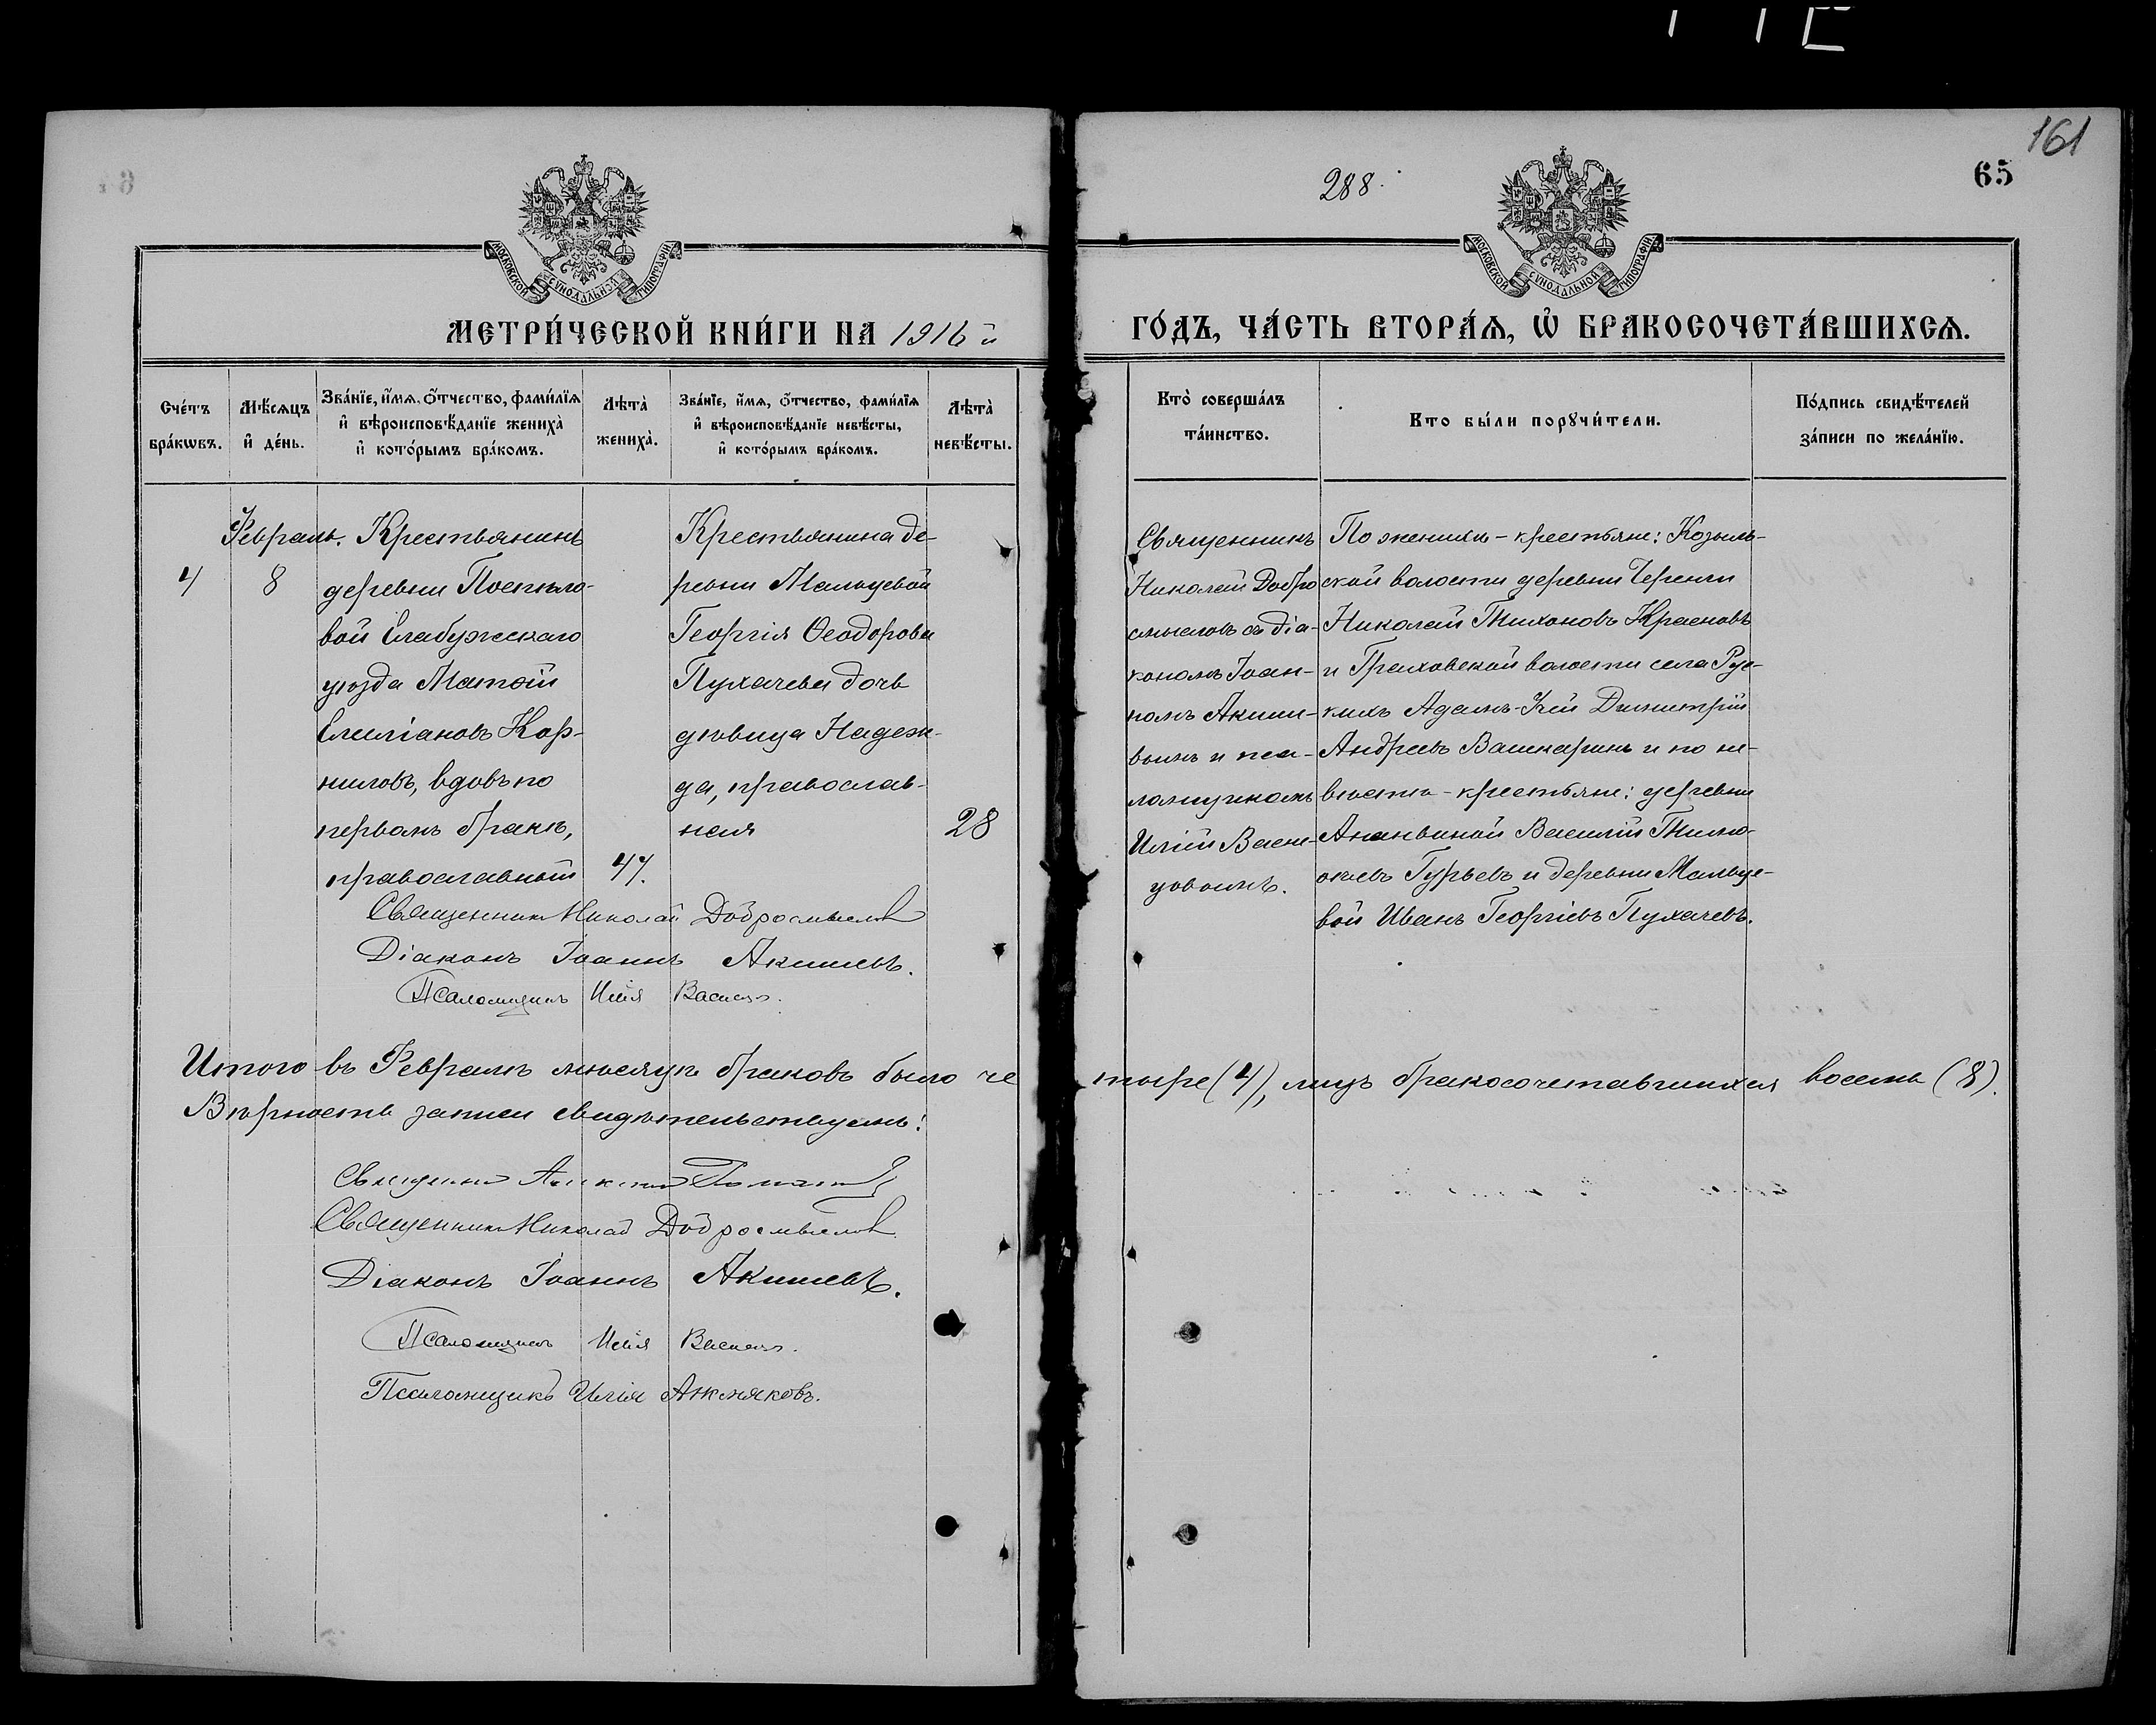 161
65
288.
МОСКОВСКОЙ СѴНОДАЛЬНОЙ ТИПОГРАФІИ
МОСКОВСКОЙ СѴНОДАЛЬНОЙ ТИПОГРАФІИ
МЕТРИ́ЧЕСКОЙ КНИ́ГИ НА 1916 й
ГО́ДЪ, ЧА́СТЬ ВТОРА́Ѧ, Ѽ БРАКОСОЧЕТА́ВШИХСѦ.
Сче́тъ бра́кѡвъ.
Мѣ́сяцъ и҆ де́нь.
Зва́нїе, и҆́мѧ, ѻ҆́тчество, фами́лїѧ и҆ вѣроисповѣ́данїе жениха̀ и҆ кото́рымъ бра́комъ.
Лѣта̀ жениха̀.
Зва́нїе, и҆́мѧ, ѻ҆́тчество, фами́лїѧ и҆ вѣроисповѣ́данїе невѣ́сты, и҆ кото́рымъ бра́комъ.
Лѣта̀ невѣ́сты.
Кто̀ соверша́лъ та́инство.
Кто бы́ли порꙋчи́тели.
По́дпись свидѣ́телей за́писи по жела́нїю.
4
Февраль.
8
Крестьянинъ
деревни
вой Елабужскаго
уѣзда Матѳій
Емиліановъ Кор-
ниловъ, вдовъ по
первомъ бракѣ,
православный
47.
Крестьянина де-
ревни Мальцевой
Георгія Ѳеодорова
Пухачева дочь
дѣвица Надеж-
да, православ-
ная
28
Священникъ
Николай Добро
смысловъ съ діа-
кономъ Іоан-
номъ Акише-
вымъ и пса-
ломщикомъ
Иліей Васне-
цовымъ.
По женихѣ - крестьяне: Козыль-
ской волости деревни
Николай Тихоновъ Красновъ
и Граховской волости села Рус-
кихъ Адамъ-Учи Димитрій
Андреевъ Вашкаринъ и по не-
вѣстѣ - крестьяне: деревни
Ананьиной Василій Тимо-
ѳеевъ Гурьевъ и деревни Мальце-
вой Иванъ Георгіевъ Пухачевъ.
Священникъ Николай Добросмысловъ
Діаконъ Іоаннъ Акишевъ.
Псаломщикъ Илія Васнецовъ.
Итого въ Февралѣ мѣсяцѣ браковъ было че
тыре (4), лицъ бракосочетавшихся восемь (8).
Вѣрность записи свидѣтельствуемъ:
Священникъ
Священникъ Николай Добросмысловъ
Діаконъ Іоаннъ Акишевъ.
Псаломщикъ Илія Васнецовъ.
Псаломщикъ Илія Ажмяковъ.